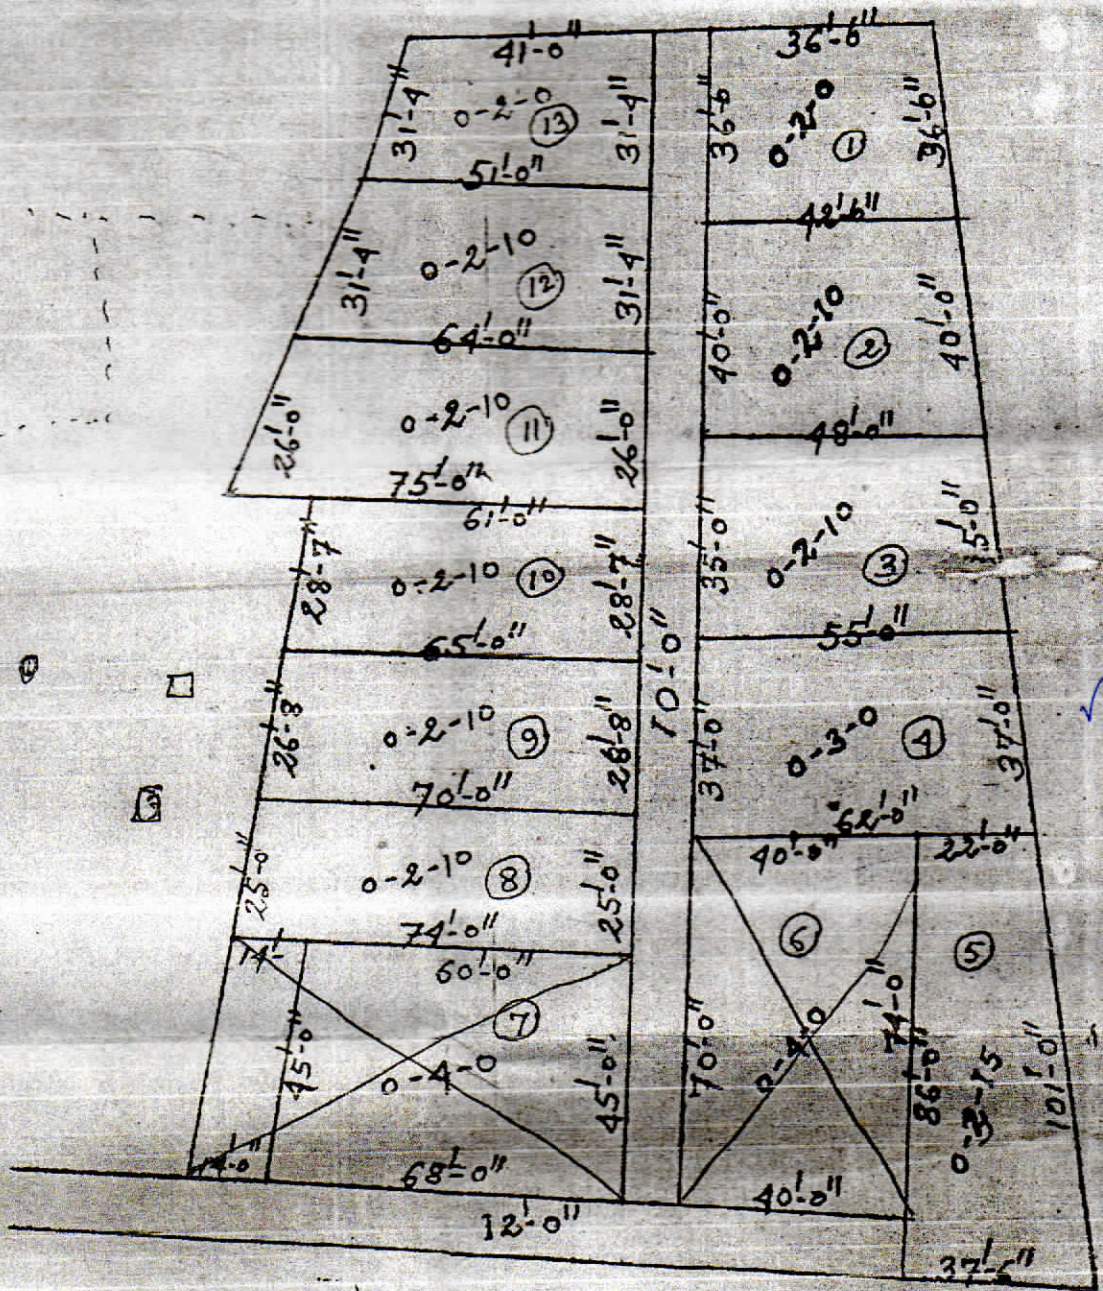 41'-0"
31'-4"
0-2-0
13
31'-4"
51'-0"
31'-4"
0-2-10
12
31'-4"
64'-0"
26'-0"
0-2-10
11
26'-0"
75'-0"
61'-0"
28'-7"
0-2-10
10
28'-7"
65'-0"
26'-8"
0-2-10
9
28'-8"
70'-0"
25'-0"
0-2-10
8
25'-0"
74'-0"
14'-
60'-0"
7
45'-0"
0-4-0
45'-0"
14'-0"
68'-0"
12'-0"
10'-0"
36'-6"
36'-6"
0-2-0
1
36'-6"
42'-6"
40'-0"
0-2-10
2
40'-0"
48'-0"
35'-0"
0-2-10
3
5'-0"
55'-0"
37'-0"
0-3-0
4
37'-0"
62'-0"
40'-0"
22'-0"
6
5
70'-0"
0-4-0
74'-0"
86'-0"
0-3-15
101'-0"
40'-0"
37'-6"